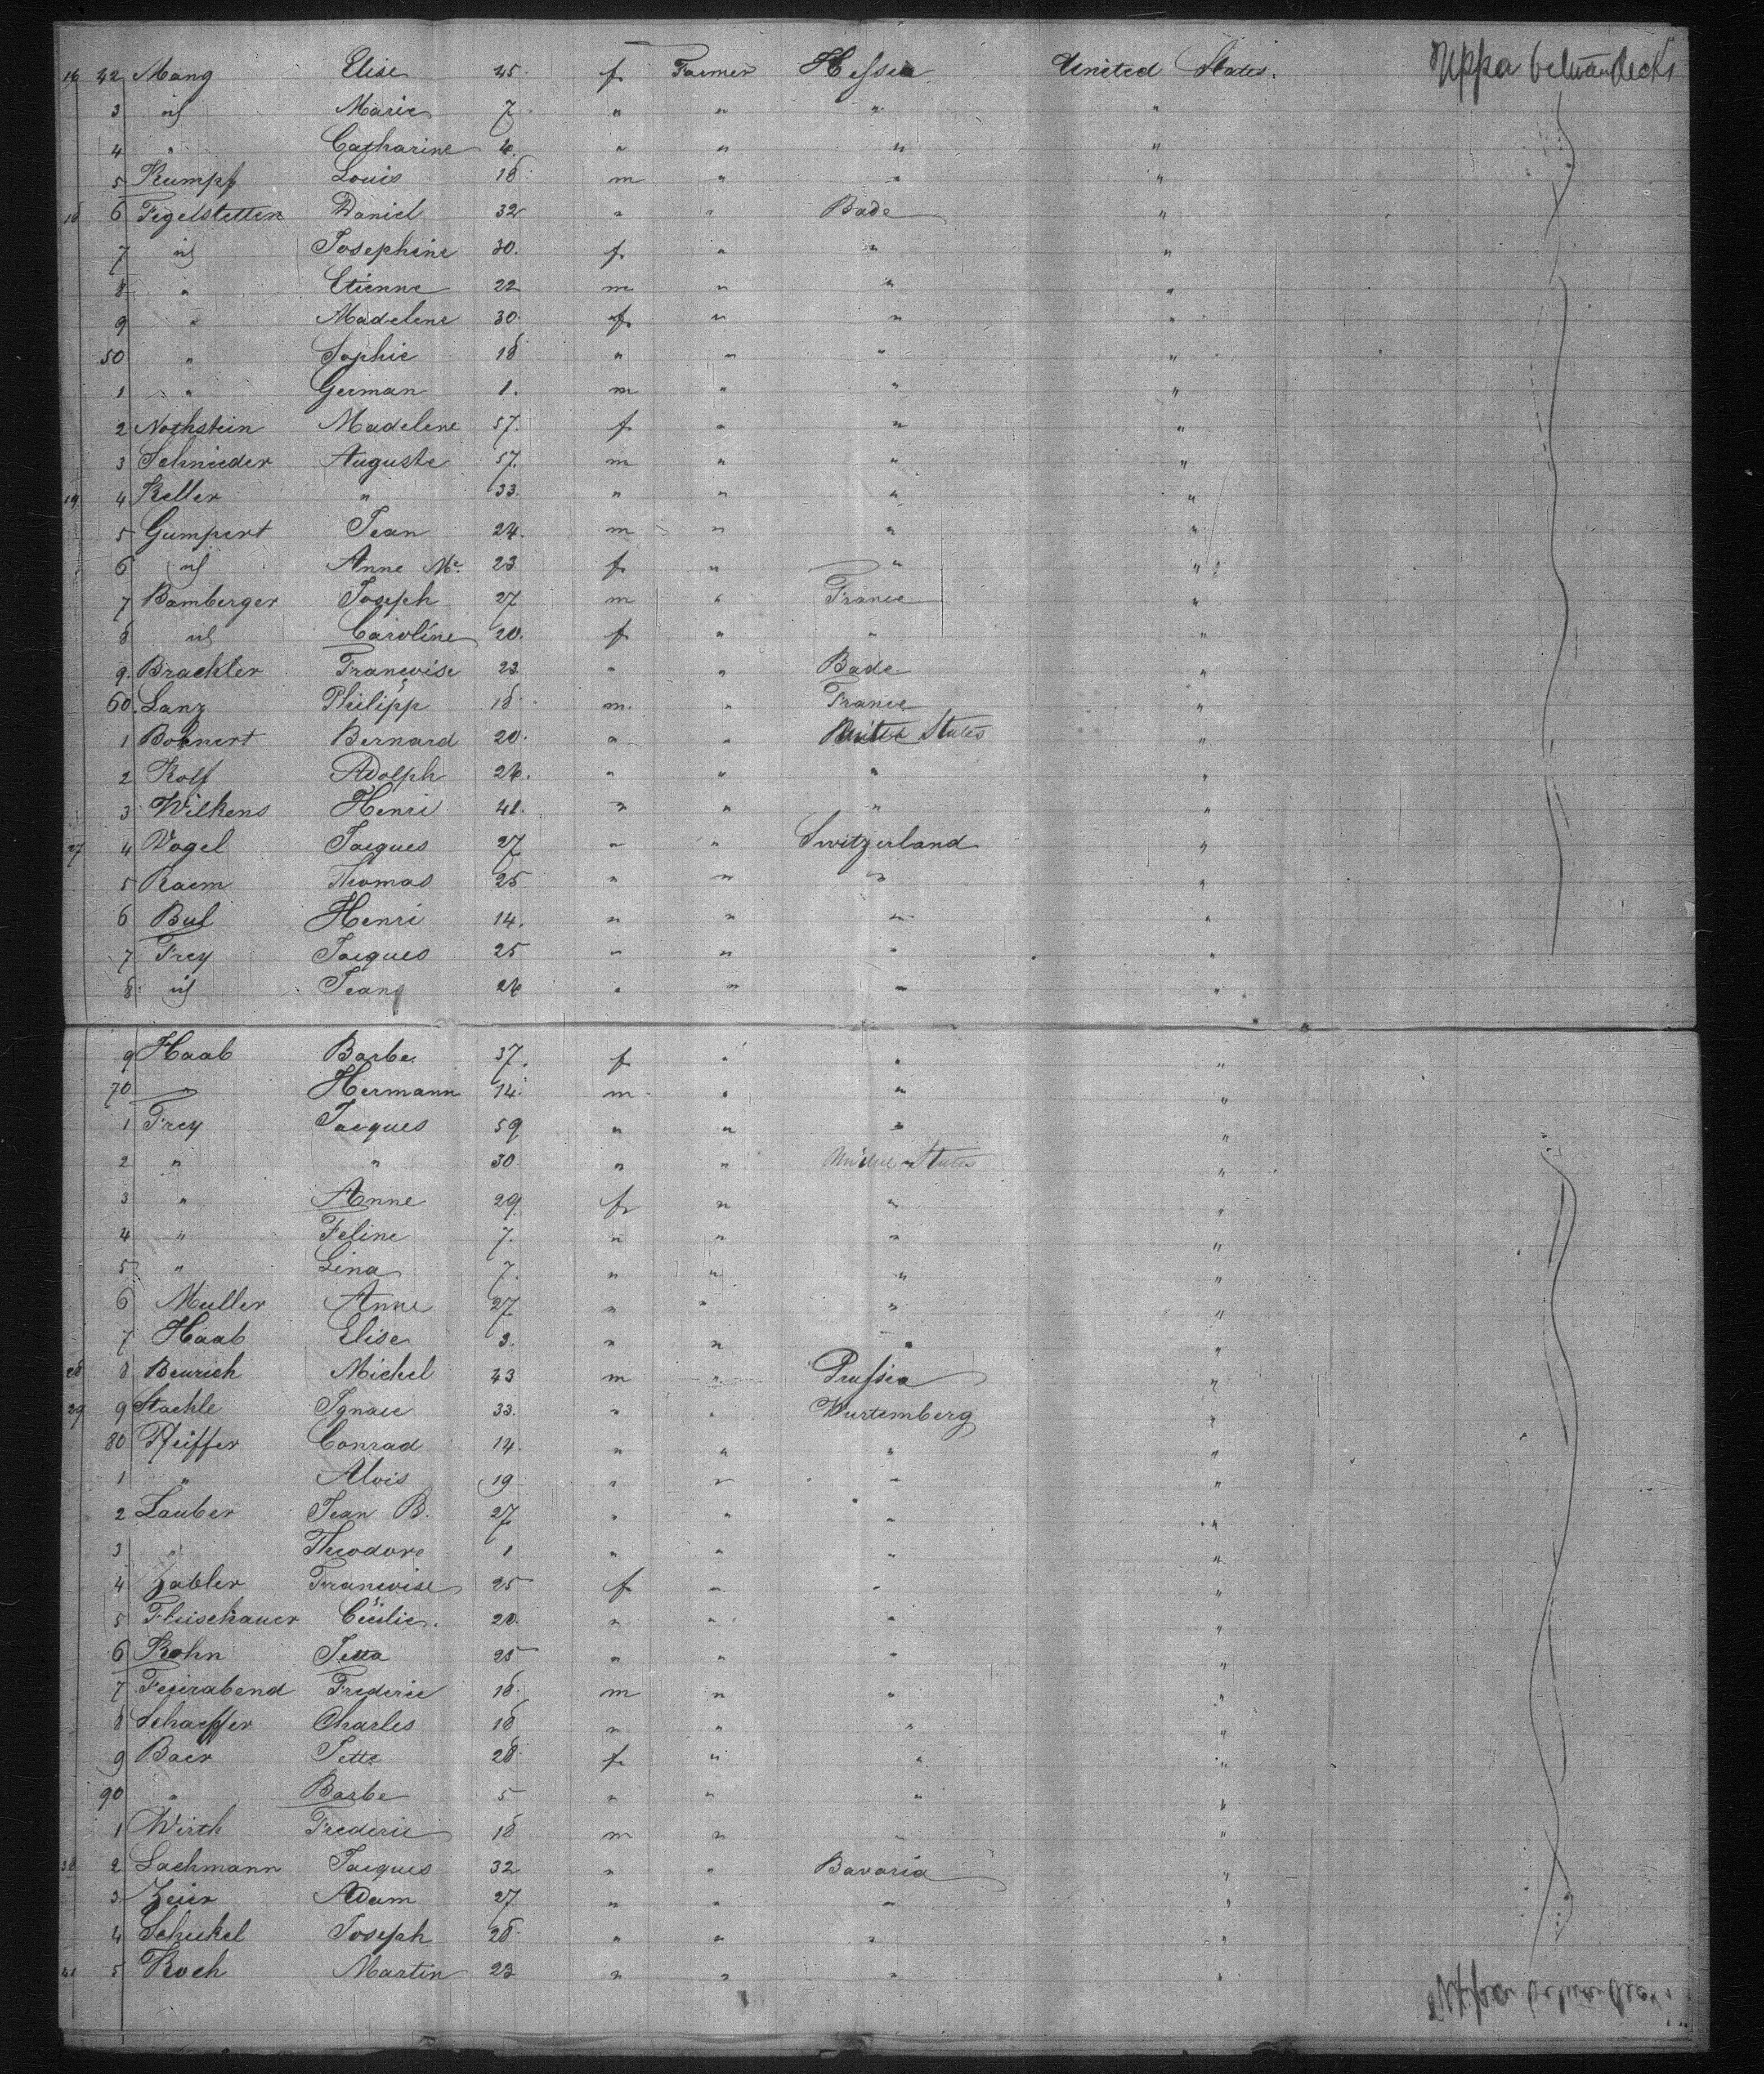 16 42 Mang Elise 25 f Farmer Hessia United States. Uppa between decks
3 id Marie 7 " " " "
4 " Catharine 4. " " " "
5 Rumpf Louis 18 m " " "
18 6 Figelstetten Daniel 32 " " Bade "
7 id Josephine 30. f " " "
8 " Etienne 22 m " " "
9 " Madelene 30. f " " "
50 " Sophie 18 " " " "
1 " German 1. m " " "
2 Nothstein Madelene 57. f " " "
3 Schnieder Auguste 57. m " " "
19 4 Keller " 33. " " " "
5 Gumpert Jean 24. m " " "
6 id Anne Me 23 f " " "
7 Bamberger Joseph 27 m " France "
8 id Caroline 20. f " " "
9. Brachler Françoise 23 " " Bade "
60. Lanz Philipp 18 m. " France "
1 Bohnert Bernard 20. " " States "
2 Rolf Adolph 24. " " " "
3 Wilkens Henri 41. " " " "
27 4 Vogel Jacques 27 " " Switzerland "
5 Raem Thomas 25 " " " "
6 Bul Henri 14. " " " "
7 Frey Jacques 25 " " " "
8 id Jean 24 " " " "
9 Haab Barbe 37. f " " "
70 " Hermann 14. m " " "
1 Frey Jacques 59 " " " "
2 " " 30 " " United States "
3 " Anne 29 f " " "
4 " Feline 7. " " " "
5 " Lina 7. " " " "
6 Muller Anne 27 " " " "
7 Haab Elise 3. " " " "
28 8 Beurich Michel 43 m " Prussia "
29 9 Staehle Ignace 33. " " Wurtemberg "
80 Pfeiffer Conrad 14. " " " "
1 " Alois 19 " " " "
2 Lauber Jean B. 27 " " " "
3 " Theodore 1 " " " "
4 Zabler Françoise 25 f " " "
5 Fleischauer Cécilie. 20. " " " "
6 Kohn Jetta 25 " " " "
7 Feierabend Frederic 18. m " " "
8 Schaeffer Charles 18 " " " "
9 Baer Jette 28. f " " "
90 " Barbe 5 " " " "
1 Wirth Frederic 18 m " " "
38 2 Lachmann Jacques 32 " " Bavaria "
3 Zeier Adam 27 " " " "
4 Scheckel Joseph 28. " " " "
41 5 Koch Martin 23 " " " "
Uppa between decks